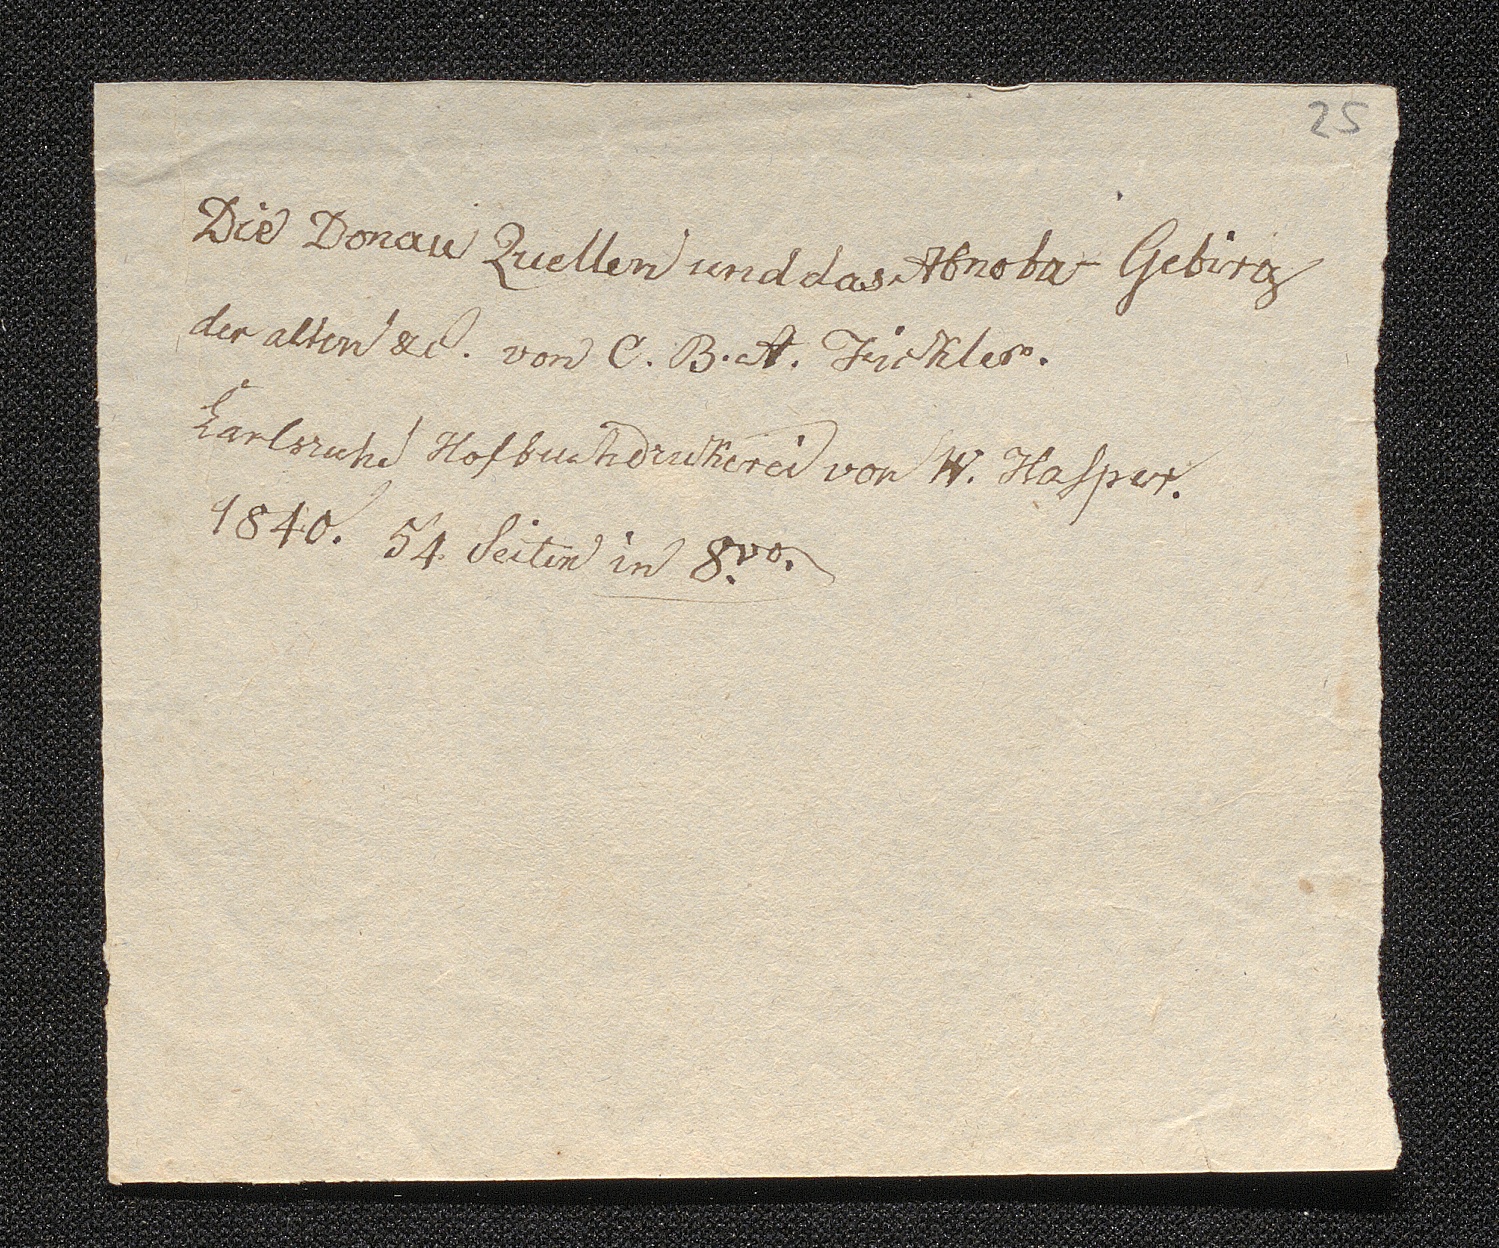 25
Die Donau Quellen und das Abnoba- Gebirg
der alten &c. von C. B. A. Fickler.
Karlsruhe Hofbuchdrukerei von W. Hasper.
1840. 54 Seiten in 8.vo.